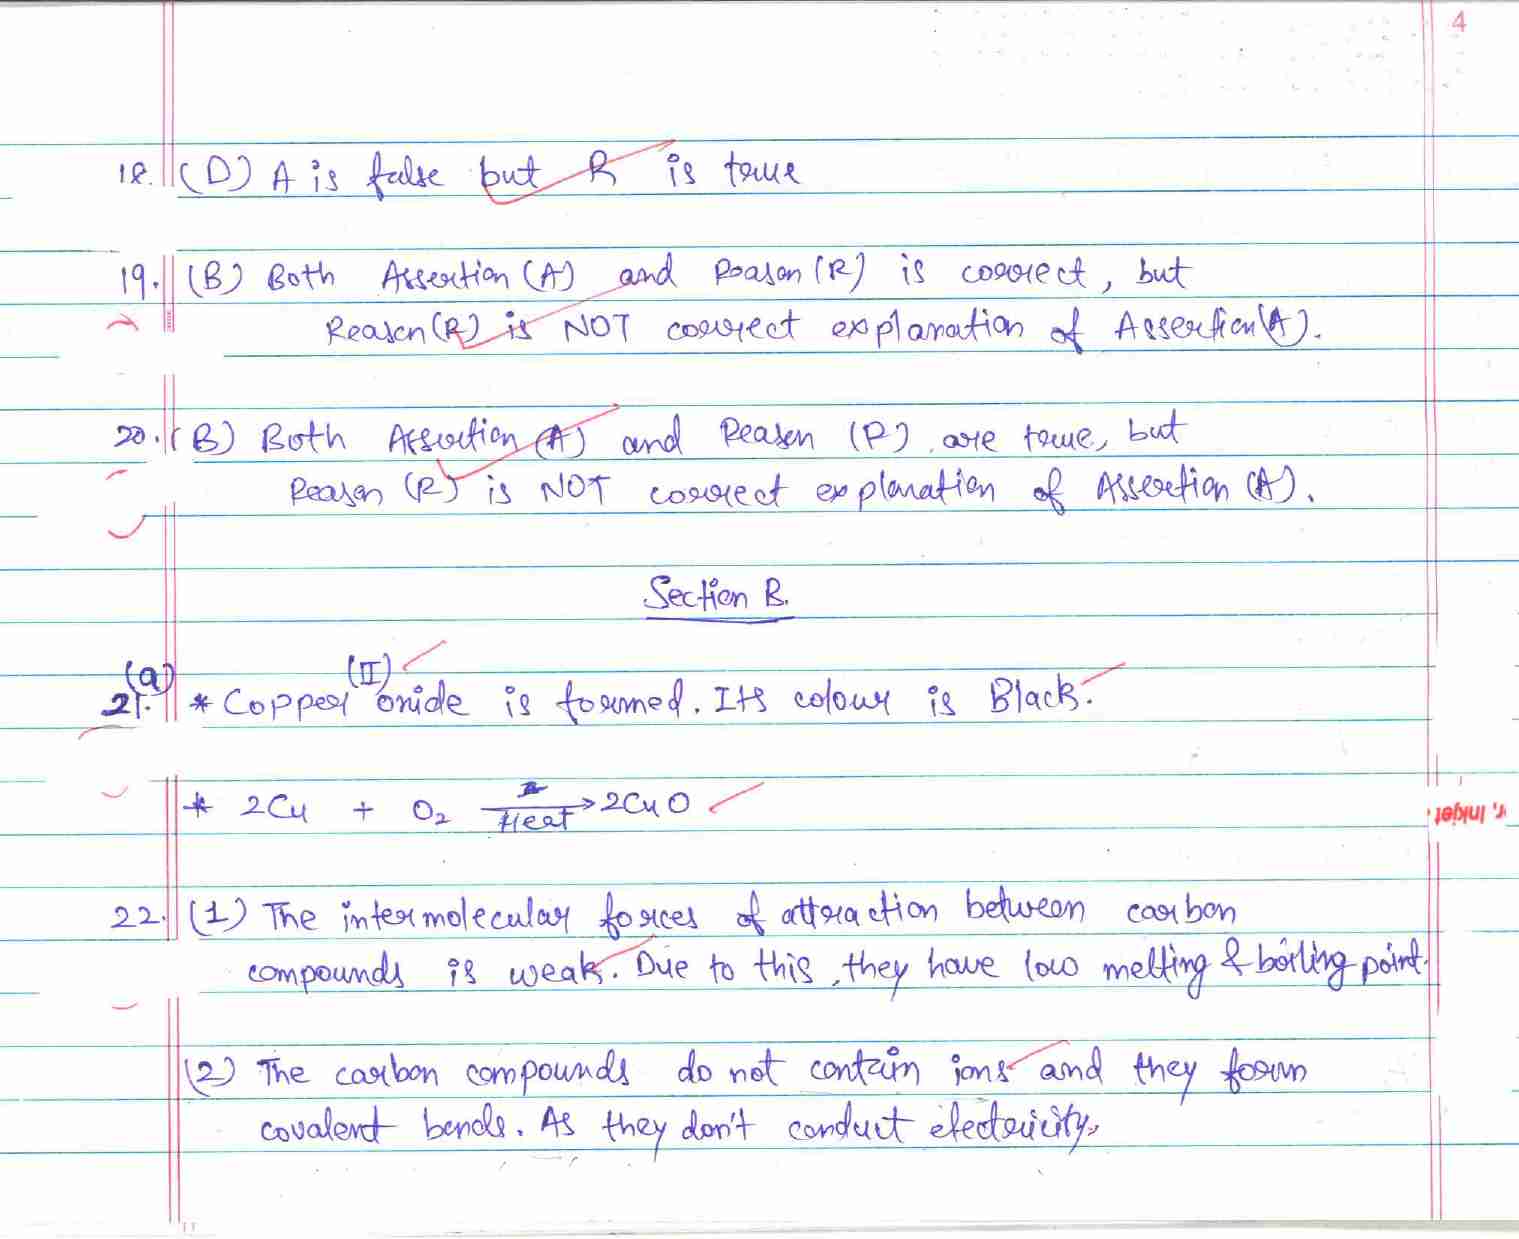 4
18. (D) A is false but R is true
19. (B) Both Assertion (A) and Reason (R) is correct, but
Reason (R) is NOT correct explanation of Assertion (A).
20. (B) Both Assertion (A) and Reason (R) are true, but
Reason (R) is NOT correct explanation of Assertion (A).
Section B.
(a) (II)
21. * Copper oxide is formed. Its colour is Black.
* 2Cu + O2 → 2CuO
Heat
r, Inkjet
22. (1) The intermolecular forces of attraction between carbon
compounds is weak. Due to this, they have low melting & boiling point.
(2) The carbon compounds do not contain ions and they form
covalent bonds. As they don't conduct electricity.